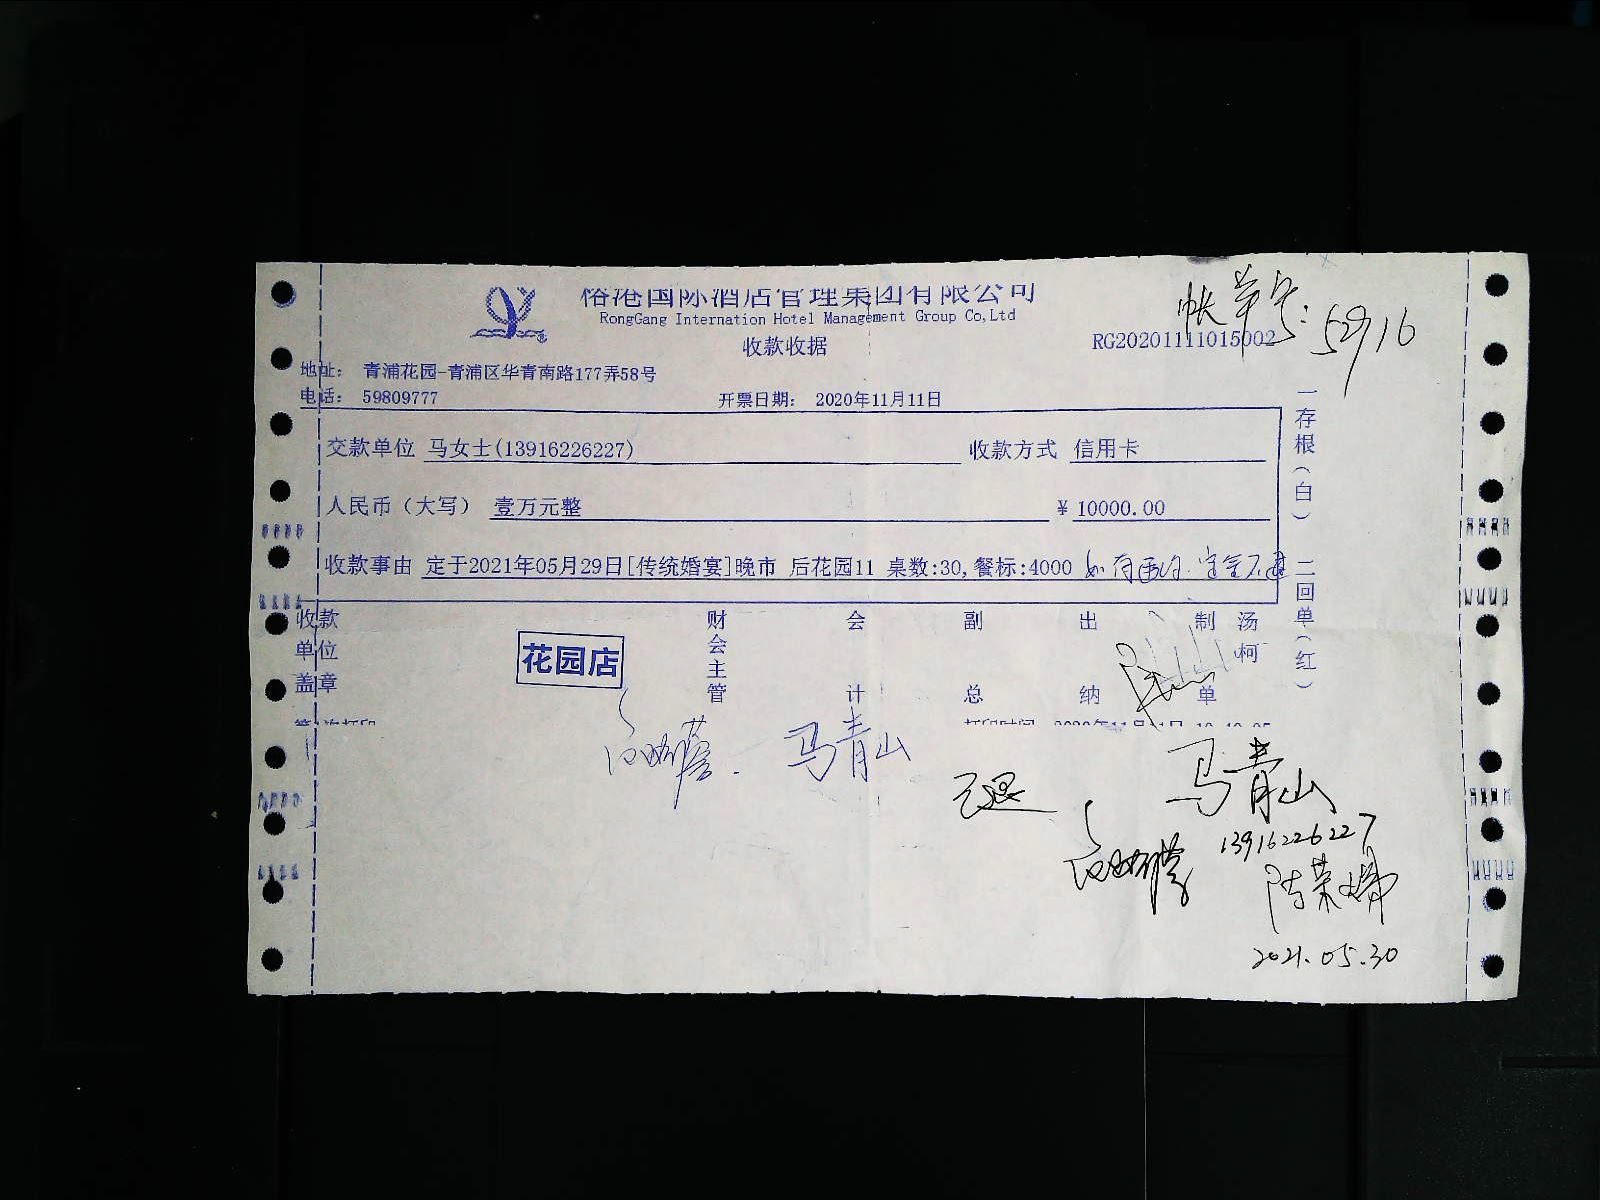 榕港国际酒店管理集团有限公司
RongGang Internation Hotel Management Group Co,Ltd
收款收据
RG20201111015002
帐单号: 52916
地址： 青浦花园-青浦区华青南路177弄58号
电话： 59809777
开票日期： 2020年11月11日
交款单位 马女士(13916226227) 收款方式 信用卡
人民币（大写） 壹万元整 ¥ 10000.00
收款事由 定于2021年05月29日[传统婚宴]晚市 后花园11 桌数:30,餐标:4000 如有违约.定金不退
一存根(白)
二回单(红)
收款单位盖章
花园店
财会主管
会计
副总
出纳
制单
汤柯
马青山
已退
马青山
13916226227
2021.05.30